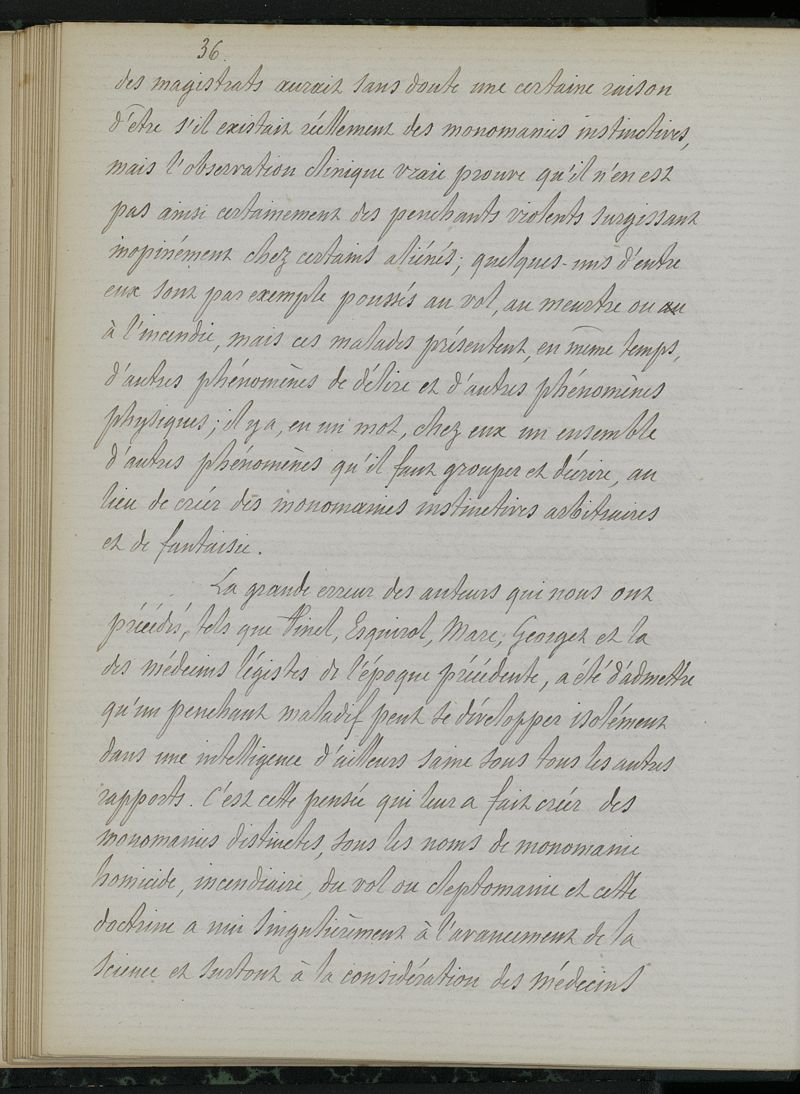 36.
des magistrats aurait sans doute une certaine raison
d'être s'il existait réellement des monomanies instinctives,
mais l'observation clinique vraie prouve qu'il n'en est
pas ainsi certainement des penchants violents surgissant
inopinément chez certains aliénés; quelques-uns d'entre
eux sont par exemple poussés au vol, au meurtre ou au
à l'incendie, mais ces malades présentent, en même temps,
d'autres phénomènes de délire et d'autres phénomènes
physiques; il y a, en un mot, chez eux un ensemble
d'autres phénomènes qu'il faut grouper et décrire, au
lieu de créer des monomanies instinctives arbitraires
et de fantaisie.
La grande erreur des auteurs qui nous ont
précédé, tels que Pinel, Esquirol, Marc, Georget et la
des médecins légistes de l'époque précédente, a été d'admettre
qu'un penchant maladif peut se développer isolément
dans une intelligence d'ailleurs saine sous tous les autres
rapports. C'est cette pensée qui leur a fait créer des
monomanies distinctes, sous les noms de monomanie
homicide, incendiaire, du vol ou cleptomanie et cette
doctrine a nui singulièrement à l'avancement de la
science et surtout à la considération des médecins